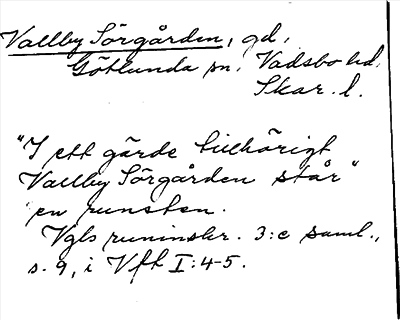 Vallby Sörgården, gd,
Götlunda sn, Vadsbo hd,
Skar. l.
"I ett gärde tillhörigt
Vallby Sörgården står"
en runsten.
Vgls runinskr. 3:e saml.,
s. 9, i Vft I:4-5.